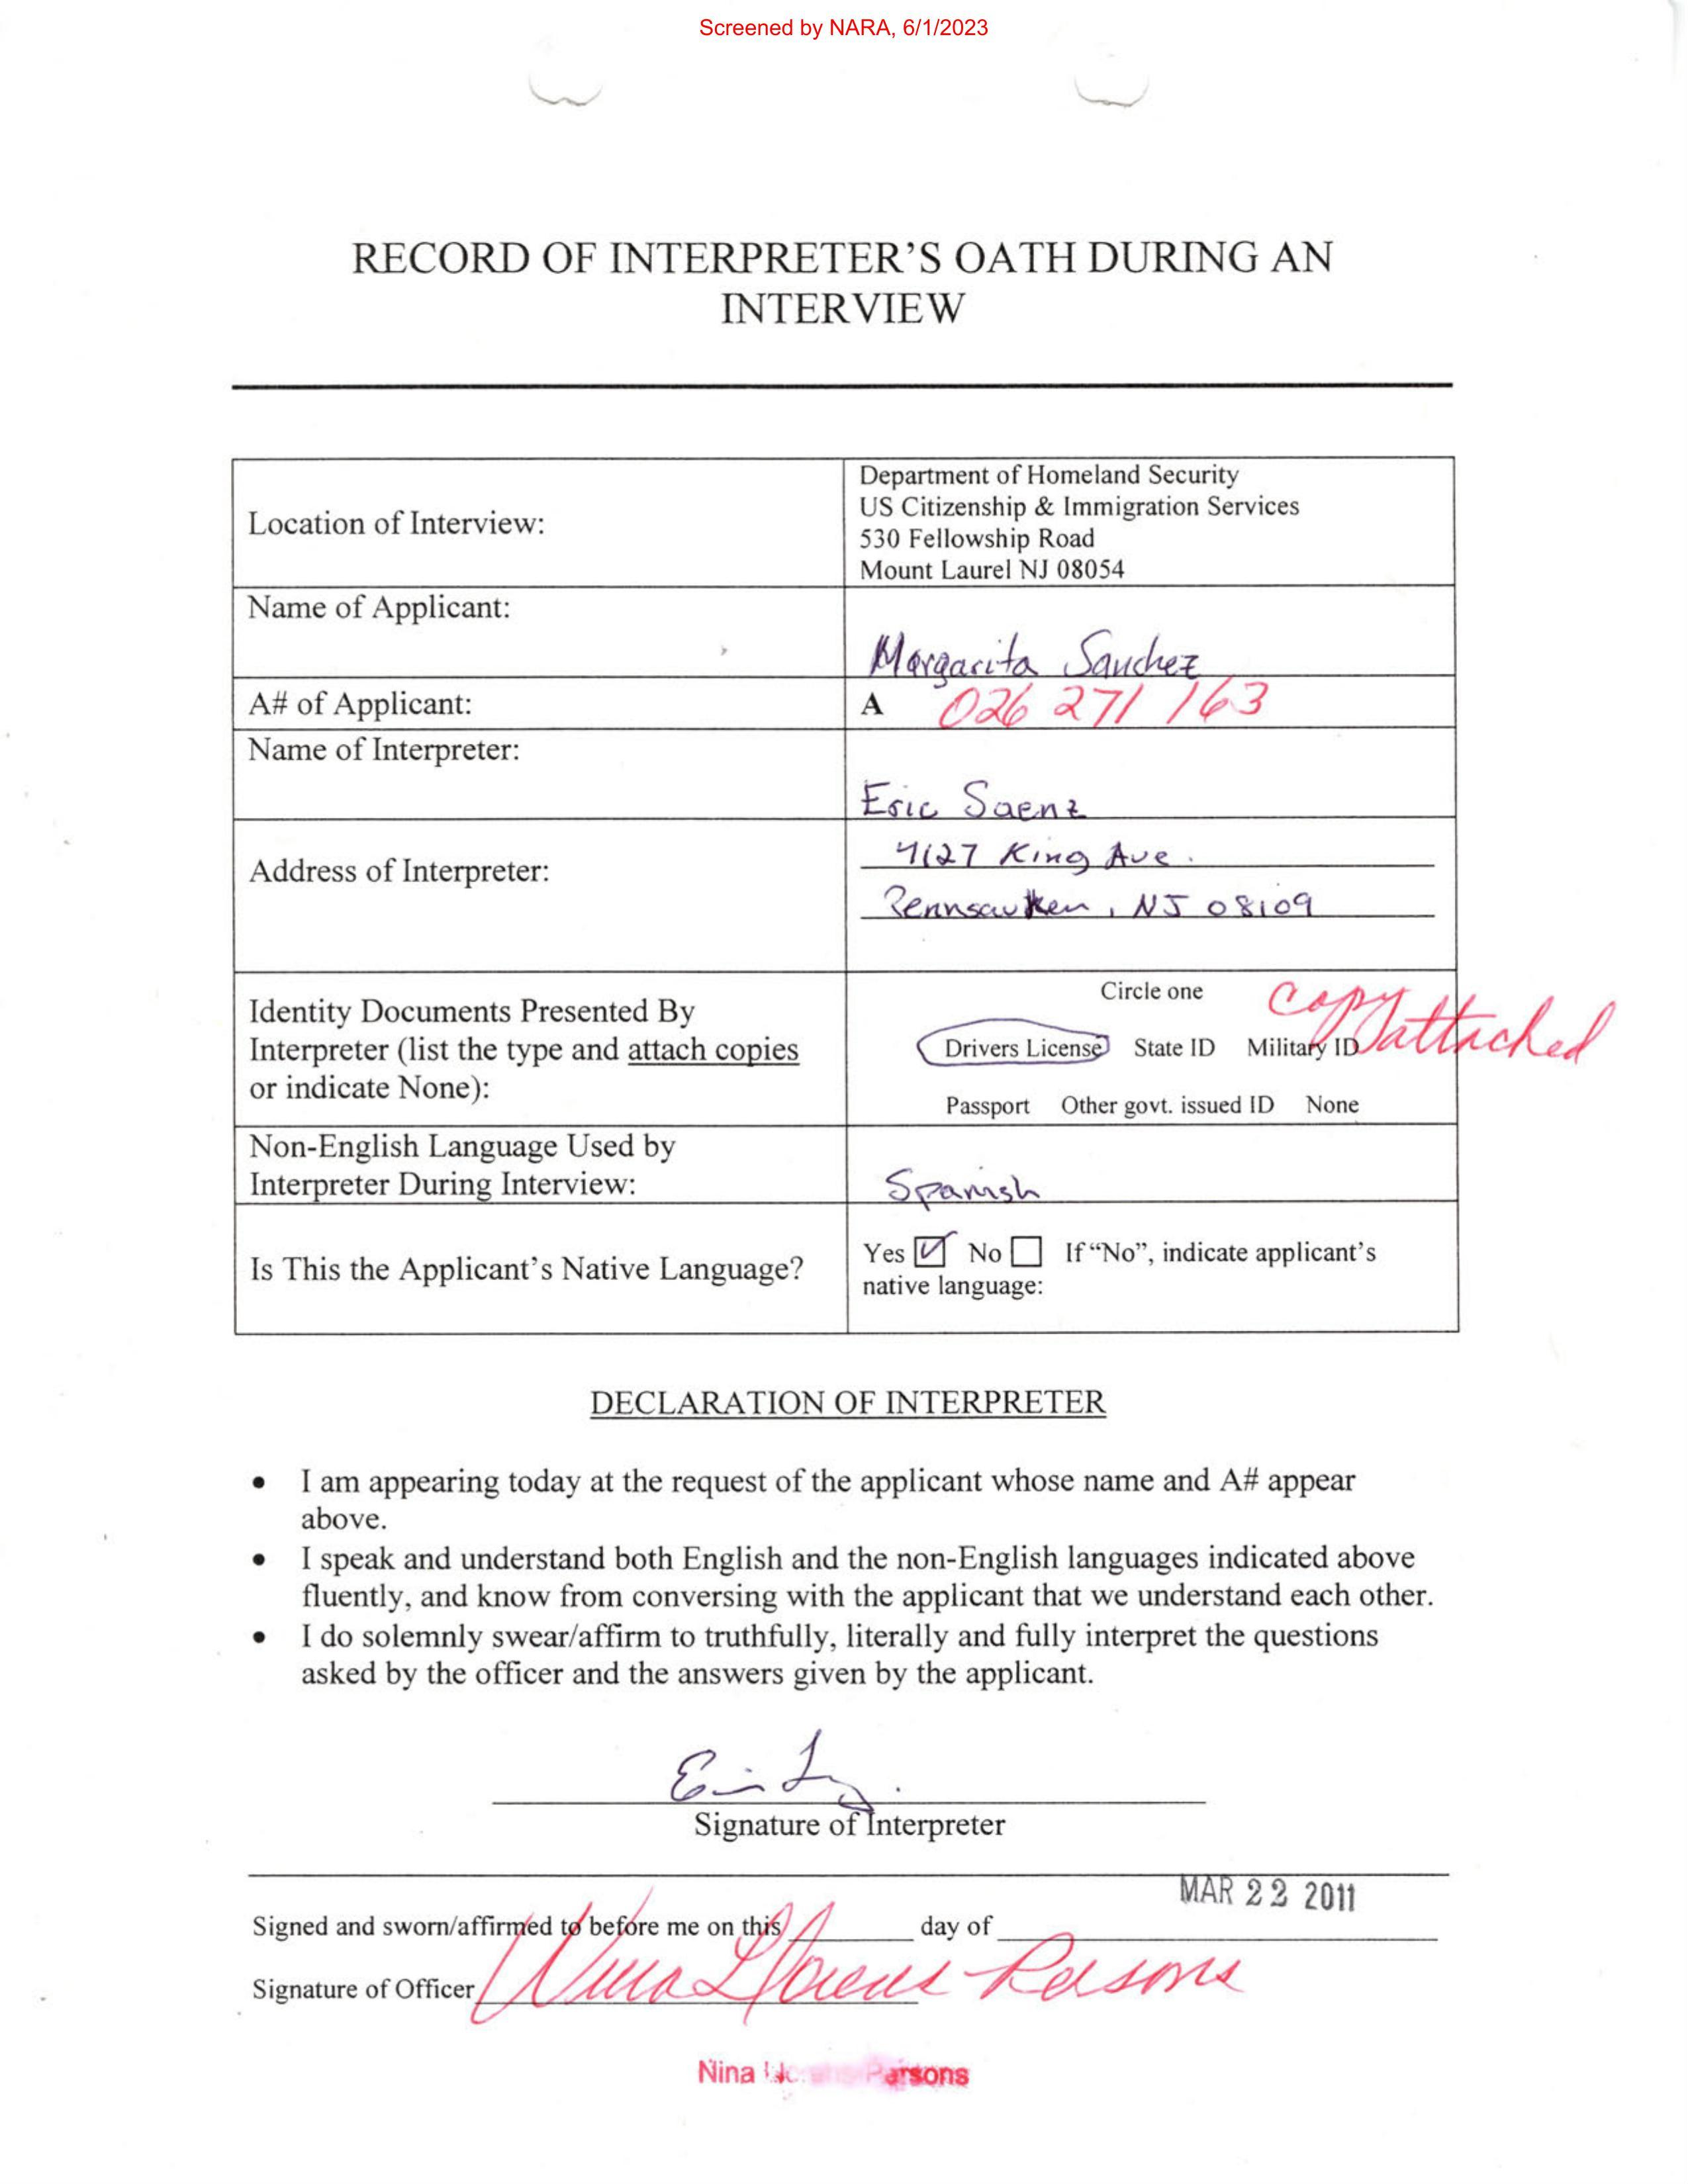 Screened by NARA, 6/1/2023
RECORD OF INTERPRETER'S OATH DURING AN
INTERVIEW
Location of Interview:
Department of Homeland Security
US Citizenship & Immigration Services
530 Fellowship Road
Mount Laurel NJ 08054
Name of Applicant:
Margarita Sanchez
A# of Applicant:
A 026 271 163
Name of Interpreter:
Eric Saenz
Address of Interpreter:
4127 King Ave.
Pennsauken, NJ 08109
Identity Documents Presented By
Interpreter (list the type and attach copies
or indicate None):
Circle one
copy attached
Drivers License State ID Military ID
Passport Other govt. issued ID None
Non-English Language Used by
Interpreter During Interview:
Spanish
Is This the Applicant's Native Language?
Yes No If "No", indicate applicant's
native language:
DECLARATION OF INTERPRETER
• I am appearing today at the request of the applicant whose name and A# appear
above.
• I speak and understand both English and the non-English languages indicated above
fluently, and know from conversing with the applicant that we understand each other.
• I do solemnly swear/affirm to truthfully, literally and fully interpret the questions
asked by the officer and the answers given by the applicant.
Signature of Interpreter
MAR 22 2011
Signed and sworn/affirmed to before me on this day of
Signature of Officer Nina Llorens Parsons
Nina Parsons